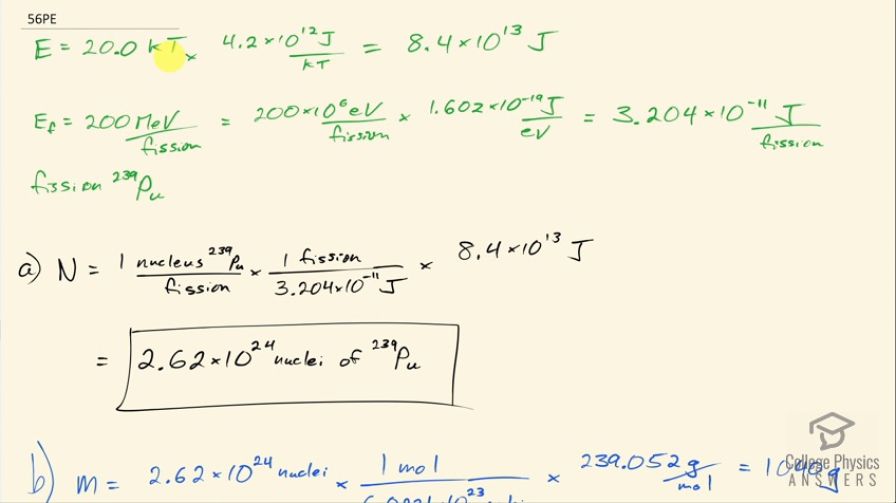 56PE
E = 20.0 kT × 4.2×10¹² J/kT = 8.4×10¹³ J
E_f = 200 MeV/fission = 200×10⁶ eV/fission × 1.602×10⁻¹⁹ J/eV = 3.204×10⁻¹¹ J/fission
fission ²³⁹Pu
a) N = 1 nucleus ²³⁹Pu/fission × 1 fission/3.204×10⁻¹¹ J × 8.4×10¹³ J
= 2.62×10²⁴ nuclei of ²³⁹Pu
b) m = 2.62×10²⁴ nuclei × 1 mol/ × 239.052 g/mol = 1040 g
College Physics
ANSWERS